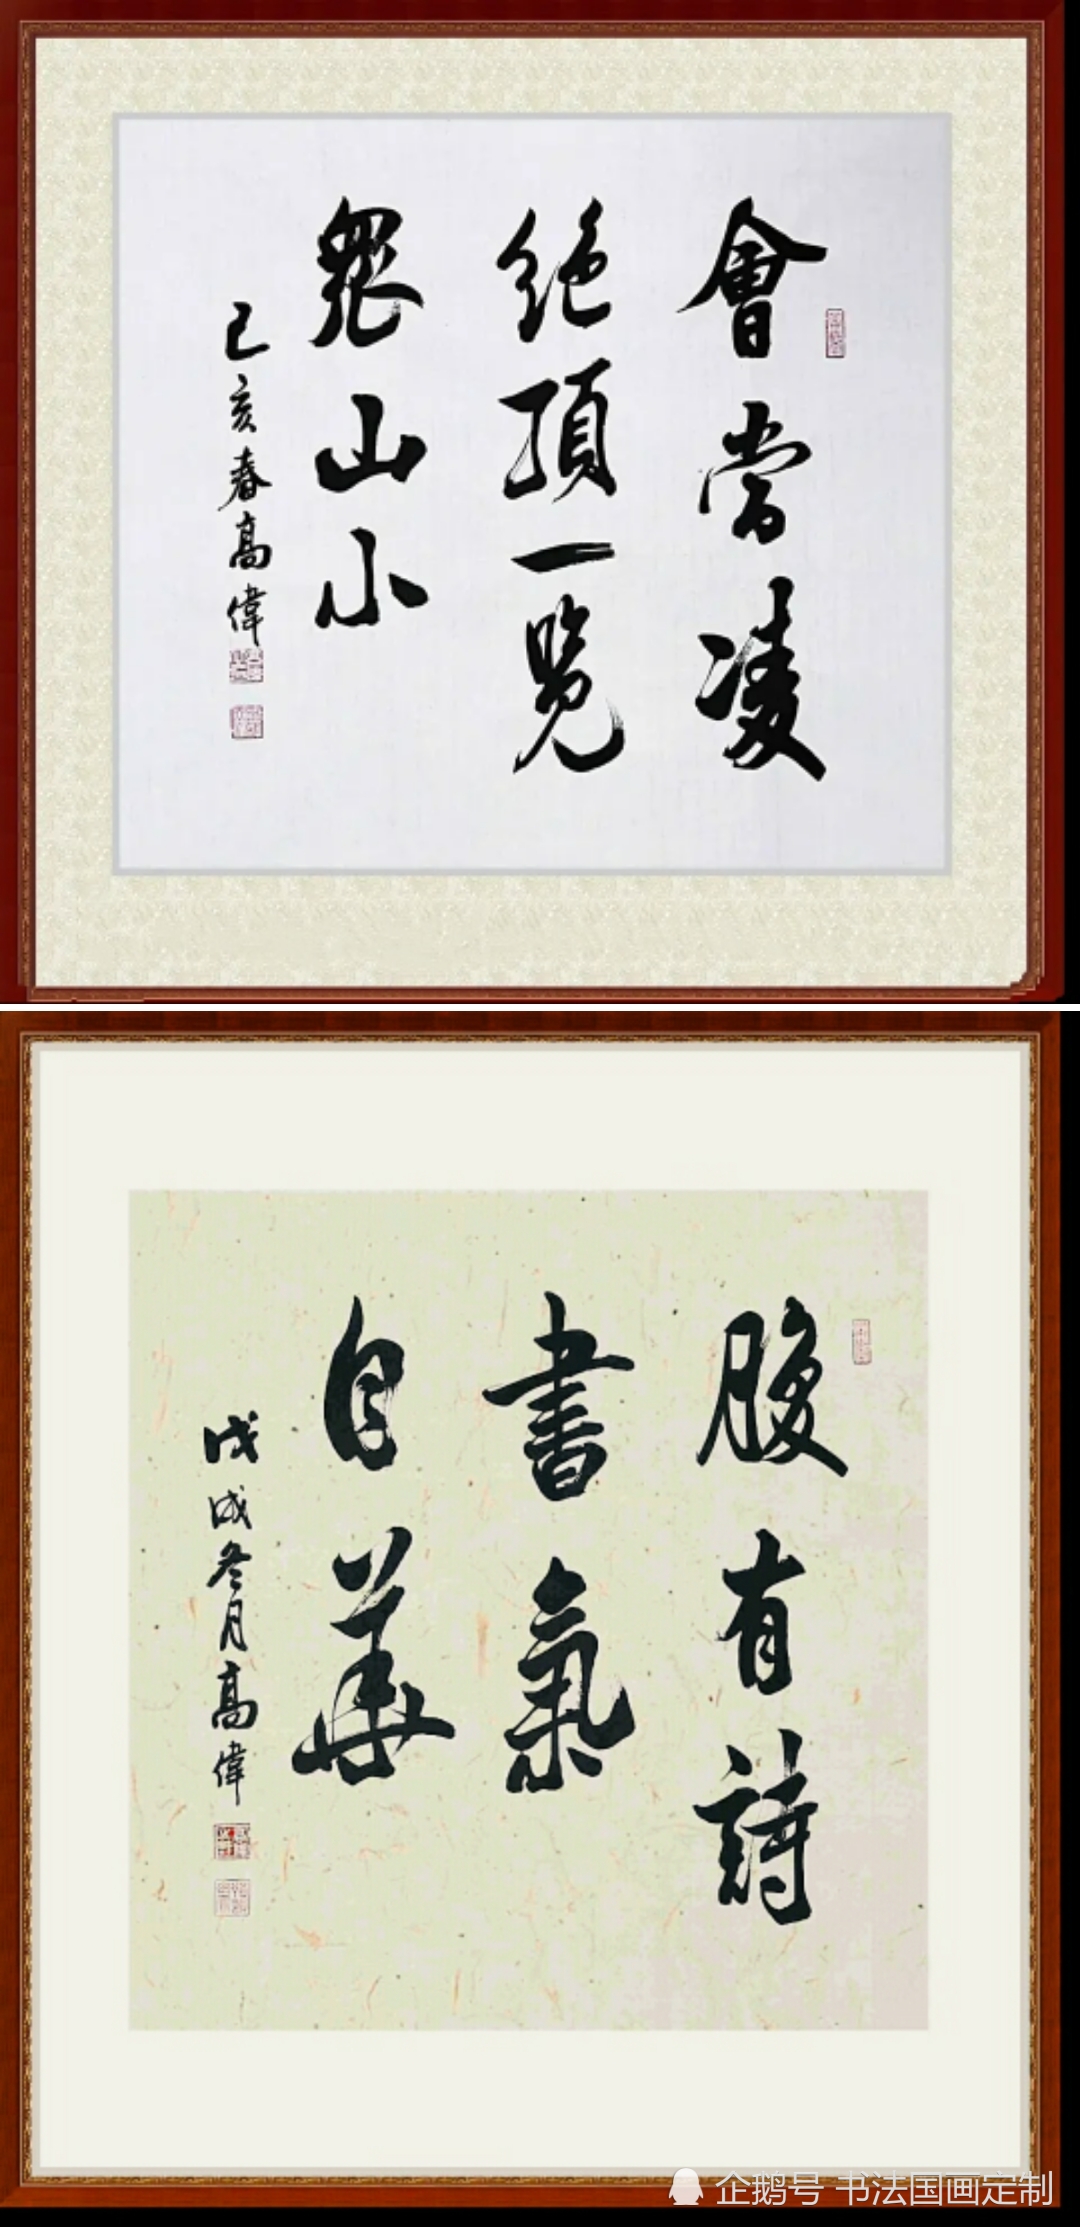 會當凌
絶頂一覽
衆山小
己亥春高偉
腹有詩
書氣
自華
戊戌冬月高偉
企鹅号 书法国画定制